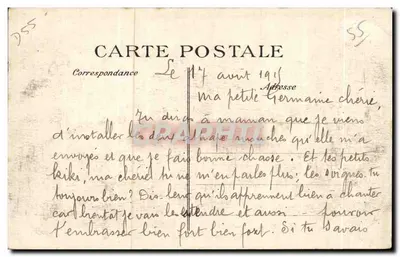 255
55
CARTE POSTALE
Correspondance
Adresse
Le 17 avril 191
Ma petite Germaine chérie,
Tu diras à maman que je viens
d'installer les deux mouches qu'elle m'a
envoyés et que je fais bonne chasse. Et tes petits
kikis, ma chérie tu ne m'en parles plus; les soignes-tu
toujours bien? Dis-leur qu'ils apprennent bien à chanter
car bientôt je vais les entendre et aussi pouvoir
t'embrasser bien fort bien fort. Si tu savais